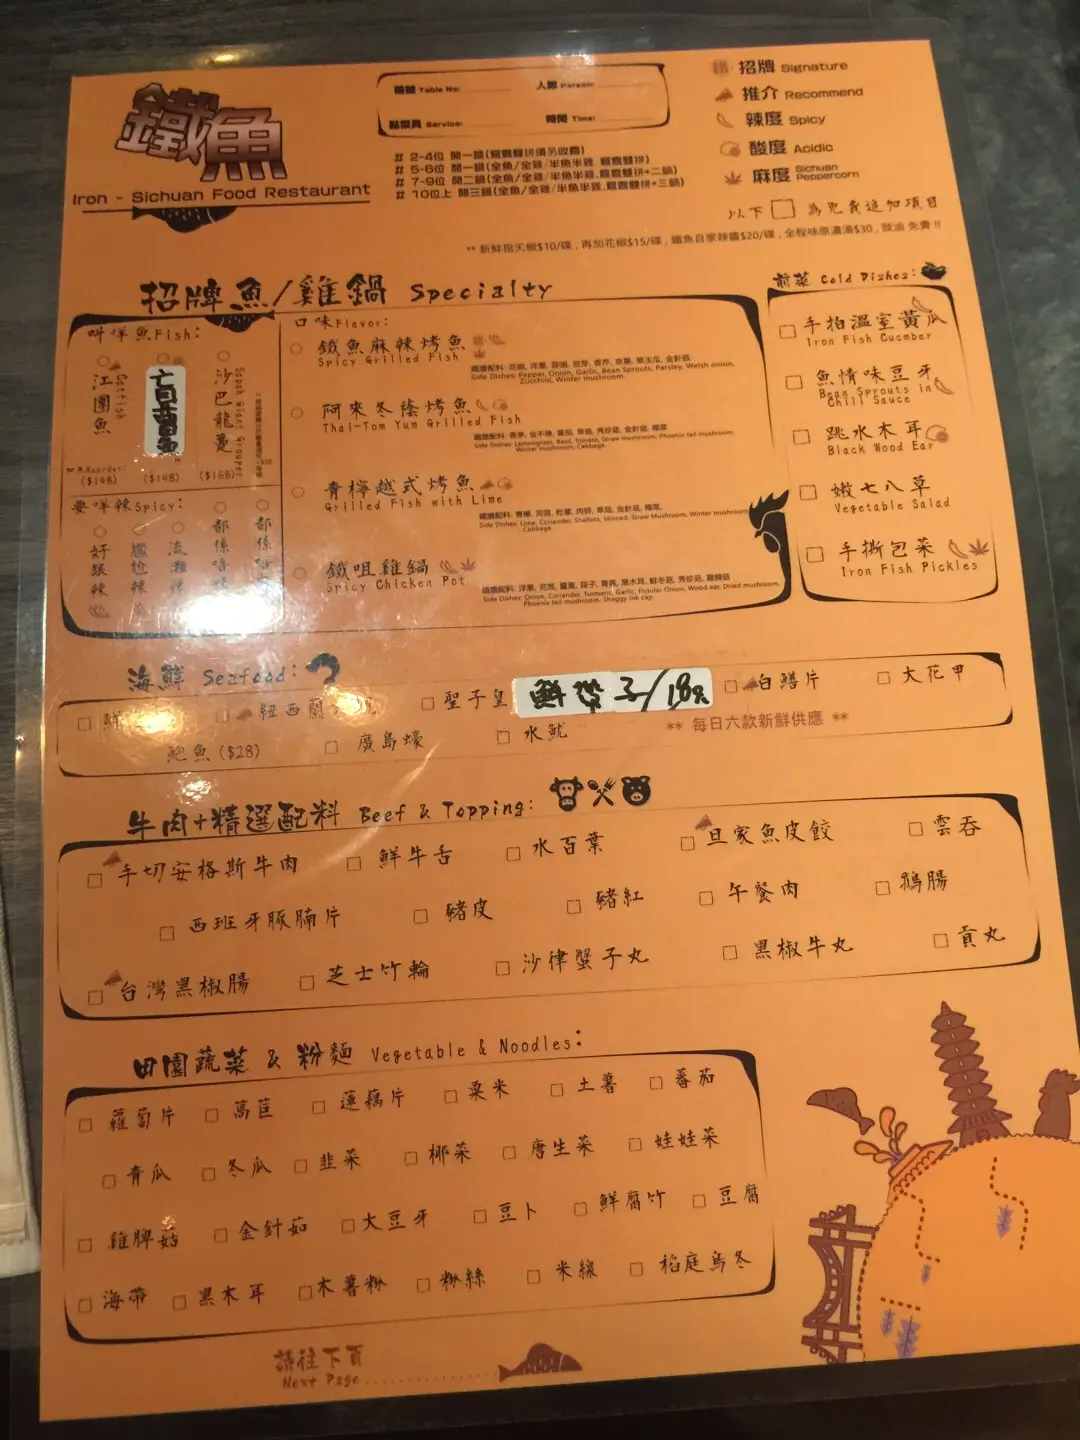 鐵魚
Iron - Sichuan Food Restaurant
檯號 Table No:
人數 Person:
點菜員 Service:
時間 Time:
# 2-4位 開一鍋(鴛鴦雙拼須另收費)
# 5-6位 開一鍋(全魚/全雞/半魚半雞,鴛鴦雙拼)
# 7-9位 開二鍋(全魚/全雞/半魚半雞,鴛鴦雙拼+二鍋)
# 10位上 開三鍋(全魚/全雞/半魚半雞,鴛鴦雙拼+三鍋)
招牌 Signature
推介 Recommend
辣度 Spicy
酸度 Acidic
麻度 Sichuan Peppercorn
以下 □ 為免費追加項目
** 新鮮指天椒$10/碟 , 再加花椒$15/碟 , 鐵魚自家辣醬$20/碟 , 全程味原濃湯$30 , 豉油 免費 !!
招牌魚/雞鍋 Specialty
叫咩魚Fish:
江團魚 Catfish
($148)
盲曹魚
($148)
沙巴龍躉 Sabah Giant Grouper
($168)
要咩辣Spicy:
好
尷尬辣
流
都係
都係
口味Flavor:
鐵魚麻辣烤魚
Spicy Grilled Fish
鐵膳配料: 花椒, 洋蔥, 蒜頭, 豆芽, 香芹, 京蔥, 翠玉瓜, 金針菇
Side Dishes: Pepper, Onion, Garlic, Bean Sprouts, Parsley, Welsh onion,
Zucchini, Winter mushroom.
阿來冬蔭烤魚
Thai-Tom Yum Grilled Fish
鐵膳配料: 香茅, 金不換, 蕃茄, 草菇, 秀珍菇, 金針菇, 椰菜
Side Dishes: Lemongrass, Basil, Tomato, Straw mushroom, Phoenix tail mushroom,
Winter mushroom, Cabbage.
青檸越式烤魚
Grilled Fish with Lime
鐵膳配料: 青檸, 芫茜, 乾蔥, 肉碎, 草菇, 金針菇, 椰菜,
Side Dishes: Lime, Coriander, Shallots, Minced, Straw Mushroom, Winter mushroom,
Cabbage.
鐵咀雞鍋
Spicy Chicken Pot
Side Dishes: Onion, Coriander, Turmeric, Garlic, Fistular Onion, Wood ear, Dried mushroom,
Phoenix tail mushroom, Shaggy ink cap.
前菜 Cold Dishes:
手拍溫室黃瓜
Iron Fish Cucmber
魚情味豆牙
Bean Sprouts in
Chili Sauce
跳水木耳
Black Wood Ear
嫩七八草
Vegetable Salad
手撕包菜
Iron Fish Pickles
海鮮 Seafood:
鮮
紐西蘭
聖子皇
鮮茄子/18元
白鱔片
大花甲
鮑魚($28)
廣島蠔
水魷
** 每日六款新鮮供應 **
牛肉+精選配料 Beef & Topping:
手切安格斯牛肉
鮮牛舌
水百葉
旦家魚皮餃
雲吞
西班牙豚腩片
豬皮
豬紅
午餐肉
鵝腸
台灣黑椒腸
芝士竹輪
沙律蟹子丸
黑椒牛丸
貢丸
田園蔬菜 & 粉麵 Vegetable & Noodles:
蘿蔔片
萵苣
蓮藕片
粟米
土薯
蕃茄
青瓜
冬瓜
韭菜
椰菜
唐生菜
娃娃菜
雞脾菇
金針茹
大豆牙
豆卜
鮮腐竹
豆腐
海帶
黑木耳
木薯粉
粉絲
米線
稻庭烏冬
請往下頁
Next Page